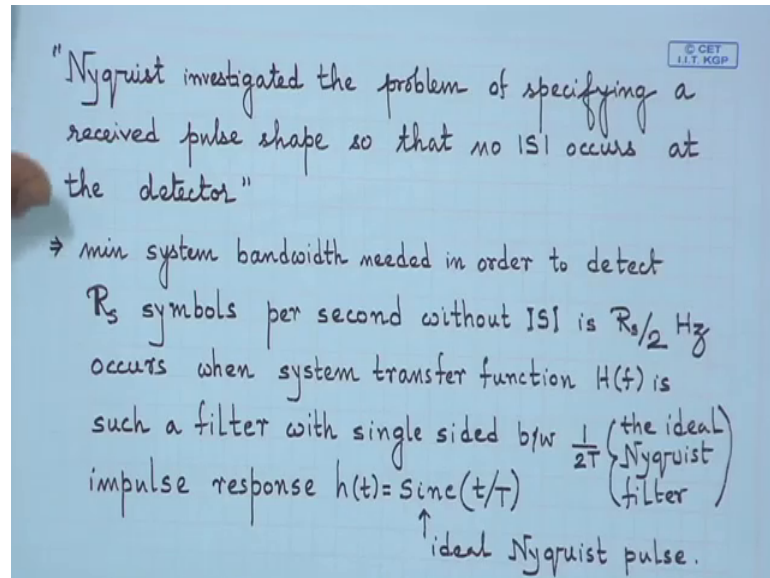 "Nyquist investigated the problem of specifying a
© CET
I.I.T. KGP
received pulse shape so that no ISI occurs at
the detector"
⇒ min system bandwidth needed in order to detect
Rs symbols per second without ISI is Rs/2 Hz
occurs when system transfer function H(f) is
such a filter with single sided b/w 1/2T (the ideal
Nyquist
filter)
impulse response h(t) = Sinc(t/T)
↑
ideal Nyquist pulse.